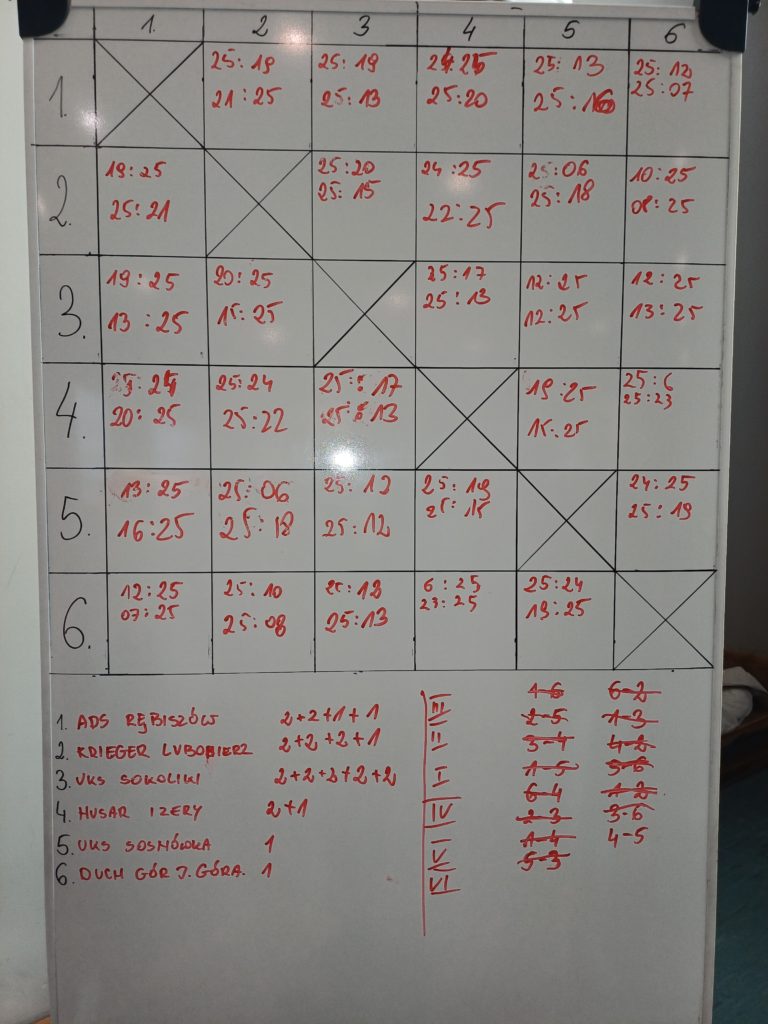 1. 2 3 4 5 6
1. 25:19 25:19 25:13 25:12
21:25 25:13 25:20 25:16 25:07
2. 19:25 25:20 24:25 25:06 10:25
25:21 25:15 22:25 25:18 08:25
3. 19:25 20:25 25:17 12:25 12:25
13:25 15:25 25:13 12:25 13:25
4. 25:24 25:17 19:25 25:6
20:25 25:22 25:13 15:25 25:23
5. 13:25 25:06 25:12 25:19 24:25
16:25 25:18 25:12 25:15 25:19
6. 12:25 25:10 25:12 6:25 25:24
07:25 25:08 25:13 23:25 19:25
1. ADS RĘBISZÓW 2+2+1+1 III
2. KRIEGER LUBOMIERZ 2+2+2+1 II
3. UKS SOKOLIKI 2+2+2+2+2 I
4. HUSAR IZERY 2+1 IV
5. UKS SOSNÓWKA 1 V
6. DUCH GÓR J. GÓRA. 1 VI
1-6 6-2
2-5 1-3
3-4 4-2
1-5 5-6
6-4 1-2
2-3 3-6
1-4 4-5
5-3